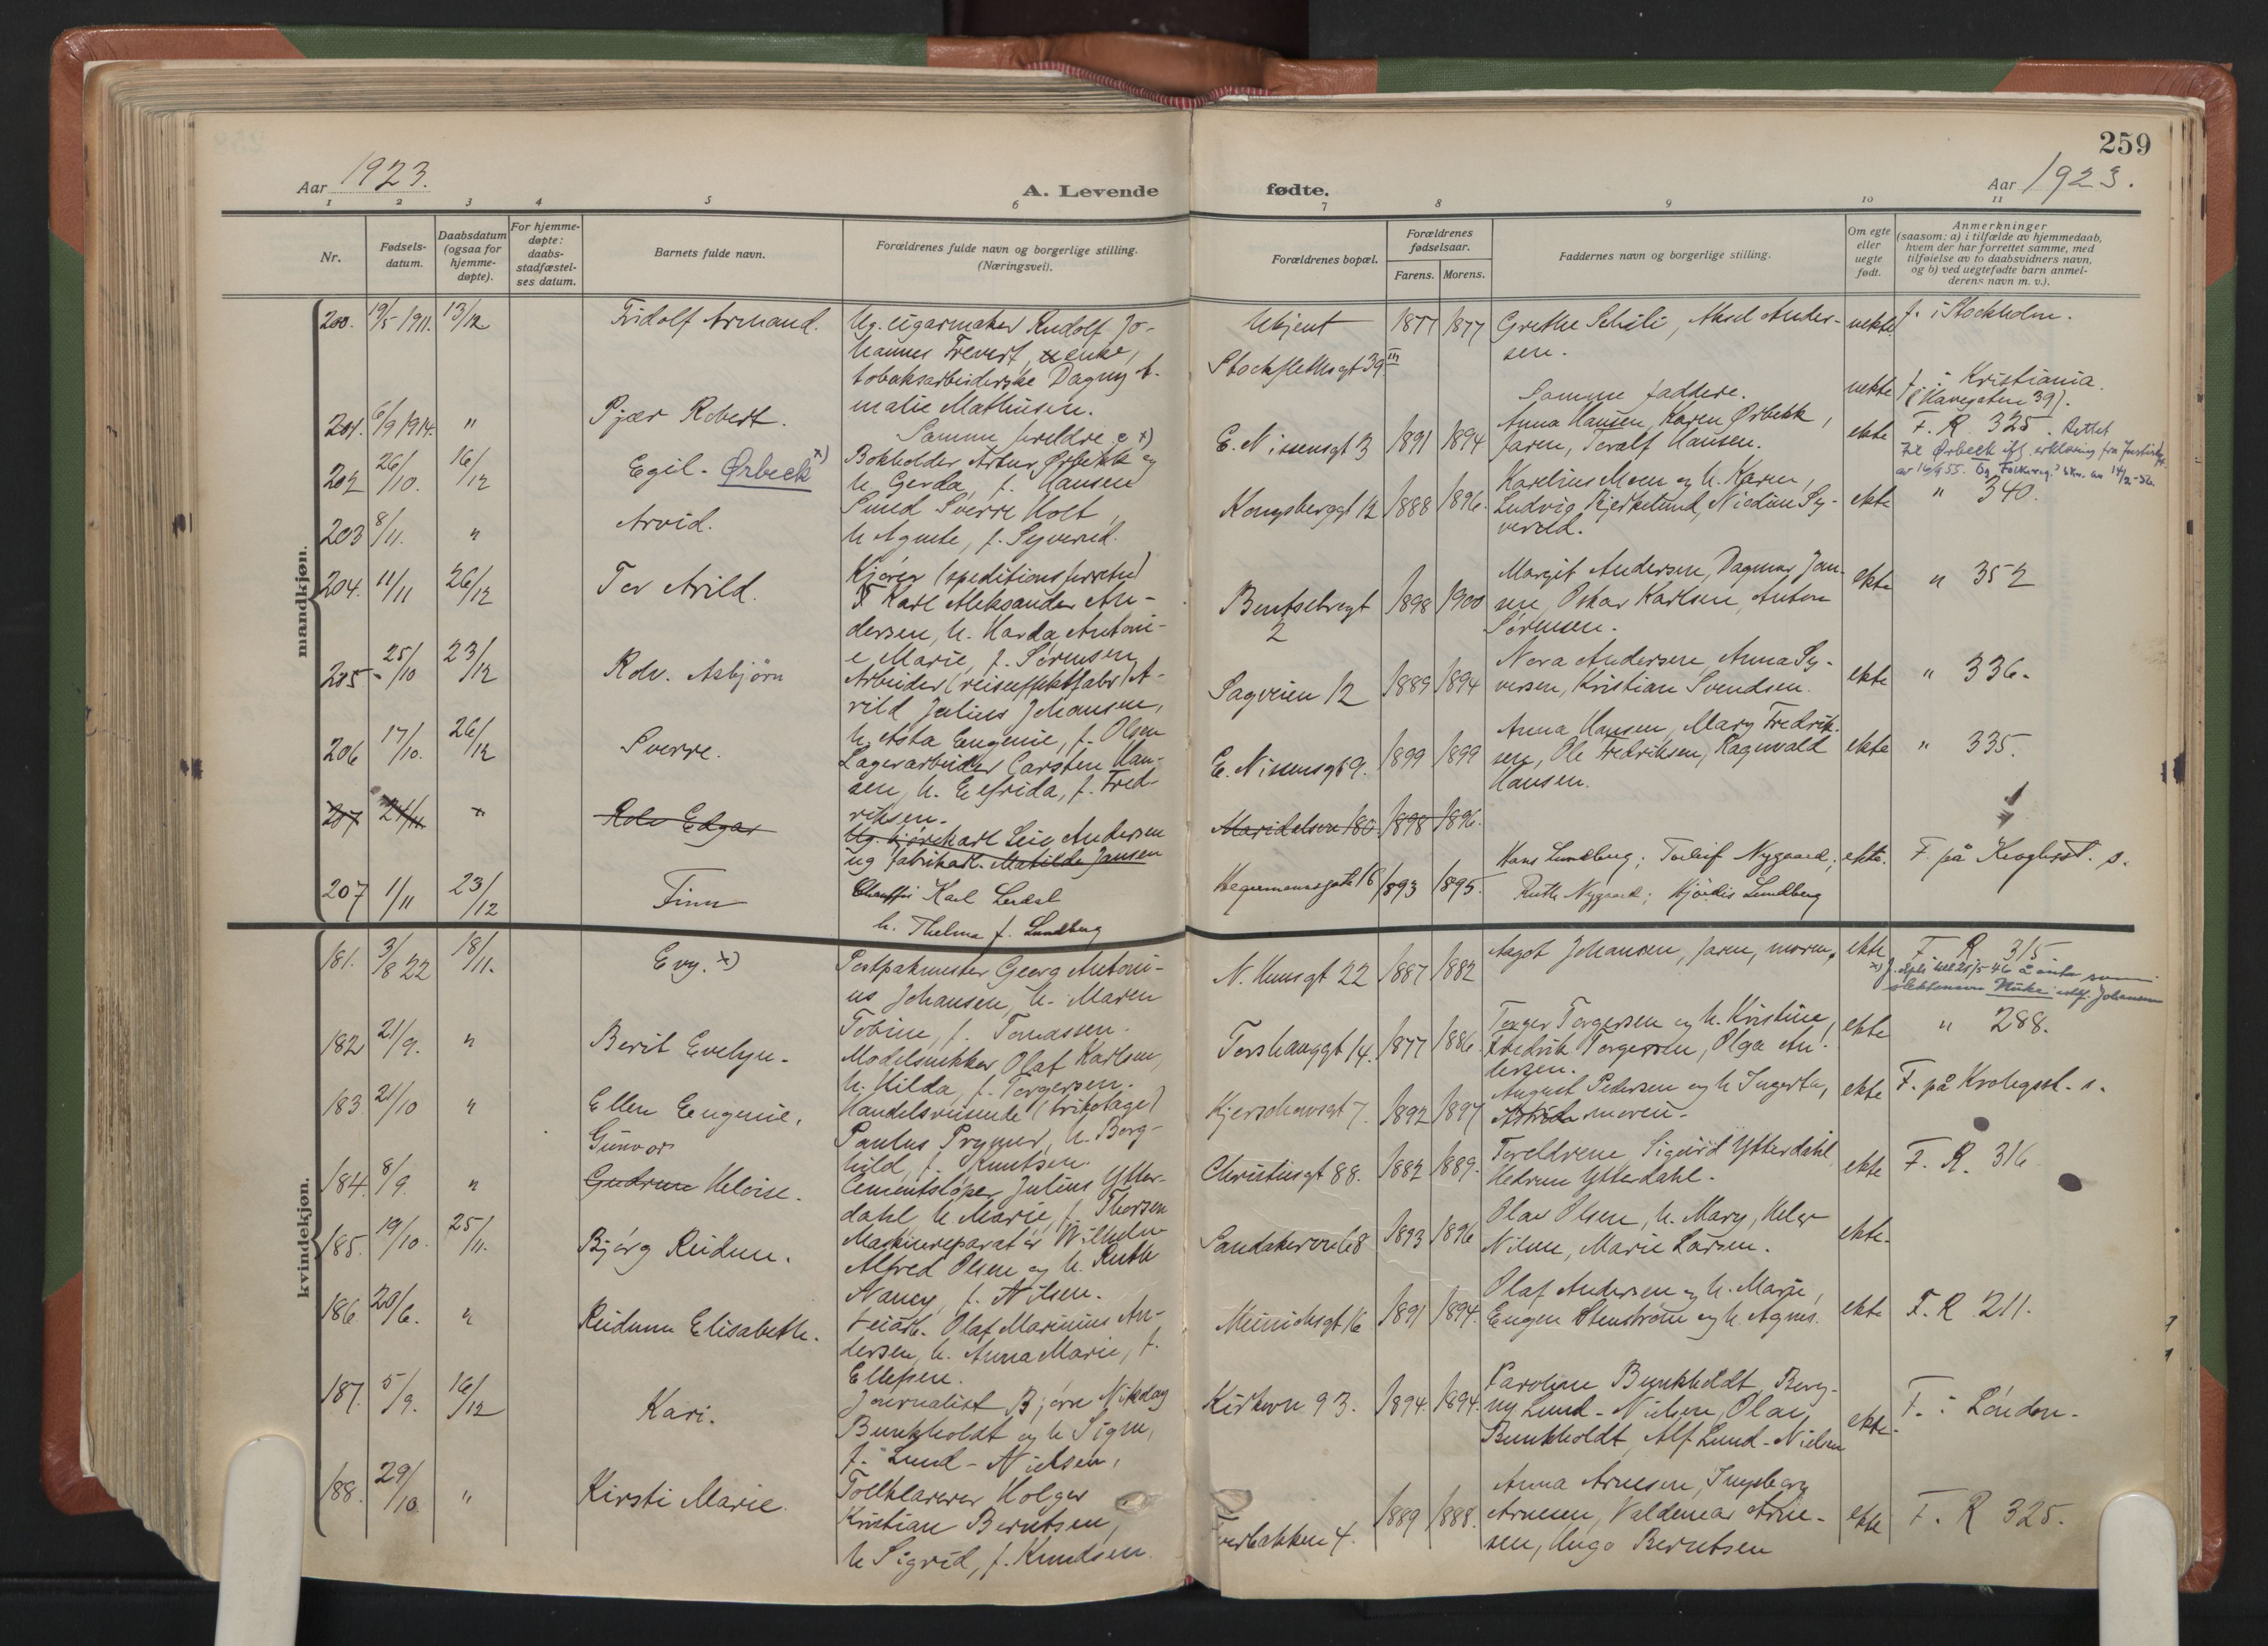 259
Aar 1923.
A. Levende fødte.
Aar 1923.
1 2 3 4 5 6 7 8 9 10 11
Nr.
Fødsels-
datum.
Daabsdatum
(ogsaa for
hjemme-
døpte).
For hjemme-
døpte:
daabs-
stadfæstel-
ses datum.
Barnets fulde navn.
Forældrenes fulde navn og borgerlige stilling.
(Næringsvei).
Forældrenes bopæl.
Forældrenes
fødselsaar.
Farens. Morens.
Faddernes navn og borgerlige stilling.
Om egte
eller
uegte
født.
Anmerkninger
(saasom: a) i tilfælde av hjemmedaab,
hvem der har forrettet samme, med
tilføielse av to daabsvidners navn,
og b) ved uegtefødte barn anmel-
derens navn m. v.).
mandkjøn.
200. 19/5 1911. 13/12 Fridolf Armand.
Ug. cigarmaker Rudolf Jo-
hannes Trevert, enke,
tobaksarbeiderske Dagny A-
malie Mathisen.
Ukjent
Stockflethsgt 39 III
1877 1877
Grethe Schili, Aksel Ander-
sen.
uekte
f. i Stockholm.
201. 6/9 1914. " Pjær Robert.
Samme foreldre.
Samme faddere.
uekte
f. i Kristiania.
(Havegaten 39).
202 26/10. 16/12 Egil. Ørbeck x)
Bokholder Artur Ørbekk og
h. Gerda, f. Hansen
E. Nissensgt 3 1891 1894
Anna Hansen, Karen Ørbekk,
faren, Toralf Hansen.
ekte
F. R 325. Rettet
til Ørbeck ifl. erklæring fra Justisdpt.
av 16/9 55. Og Folkereg.s skr. av 14/2-56.
203 8/11. " Arvid.
Smed Sverre Holt,
h Agnete, f. Syverud.
Kongsberggt 12 1888 1896.
Karelius Moen og h. Karen,
Ludvig Bjerkelund, Nicoline Sy-
verud.
ekte
" 340.
204. 11/11 26/12 Tor Arild.
Kjører (speditionsforretn)
Karl Aleksander An-
dersen, h. Harda Antoni-
e Marie, f. Sørensen
Bentsebrogt
2
1898 1900
Margit Andersen, Dagmar Jan-
sen, Oskar Karlsen, Anton
Sørensen.
ekte
" 352
205 25/10 23/12 Rolv. Asbjørn
Arbeider (reiseeffektfabr) A-
rild Julius Johansen,
h. Asta Eugenie, f. Olsen
Sagveien 12 1889 1894
Nora Andersen, Anna Sy-
versen, Kristian Svendsen.
ekte
" 336.
206 17/10. 26/12 Sverre.
Lagerarbeider Carsten Han-
sen, h. Elfrida, f. Fred-
riksen.
E. Nissensgt 9. 1899 1899
Anna Hansen, Mary Fredrik-
sen, Ole Fredriksen, Ragnvald
Hansen.
ekte
" 335.
207 21/11 " Rolv Edgar
Ug. kjørekarl Leif Andersen
ug fabrikarb. Matilde Jansen
Maridalsvn 180 1898 1896.
207 1/11 23/12 Finn
Chauffør Karl Lerdal
h. Thelma f. Lundberg
Hegermannsgate 16 1893 1895.
Hans Lundberg; Torleif Nygaard;
Ruth Nygaard; Hjördis Lundberg
ekte.
F. på Kroghsst. s.
kvindekjøn.
181. 3/8 22 18/11. Evy. x)
Postpakmester Georg Antoni-
us Johansen, h. Maren
Tobine, f. Tomassen.
N. Hunsgt 22 1887 1882
Aagot Johansen, faren, moren.
ekte
F. R 315
182 21/9. " Berit Evelyn.
Modelsnekker Olaf Karlsen,
h. Hilda, f. Torgersen.
Torshauggt 14. 1877 1886.
Torger Torgersen og h. Kristine,
Fredrik Torgersen, Olga An-
dersen.
ekte
" 288.
183 21/10 " Ellen Eugenie.
Handelsreisende (trikotage)
Paulus Prymer, h. Borg-
hild, f. Knutsen.
Kjerschowsgt 7. 1892 1897
August Pedersen og h Ingerta,
Astrid moren.
ekte
F. på Krohgsst. s.
184. 8/9. " Gunvor
Gudrun Heloise.
Cementstøper Julius Ytter-
dahl, h. Marie, f. Thorsen
Christiesgt 88. 1882 1889.
Foreldrene, Sigurd Ytterdahl,
Hedrun Ytterdahl.
ekte
F. R. 316
185. 19/10. 25/11. Bjørg Reidun.
Maskinreparatør Wilhelm
Alfred Olsen og h. Ruth
Nancy, f. Nilsen.
Sandakervn 68 1893 1896
Olav Olsen, h. Mary, Helge
Nilsen, Marie Larsen.
ekte.
186 20/6. " Reidunn Elisabeth.
Olaf Marinius An-
dersen, h. Anna Marie, f.
Ellefsen.
Meinichsgt 16 1891 1894.
Olaf Andersen og h. Marie,
Eugen Stenstrøm og h. Agnes.
ekte
F. R 211.
187. 5/9. 16/12 Kari.
Journalist Bjørn Nikolay
Bunkholdt og h Signe,
f. Lund-Nielsen,
Kirkevn 93. 1894. 1894.
Karoline Bunkholdt, Borg-
ny Lund-Nielsen, Olav
Bunkholdt, Alf Lund-Nielsen
ekte.
F. i London.
188. 29/10. " Kirsti Marie.
Tollklarerer Holger
Kristian Berntsen,
h Sigrid, f. Knudsen.
bakken 4. 1889 1888.
Anna Arnesen, Ingeborg
Arnesen, Valdemar Arne-
sen, Hugo Berntsen
ekte
F. R 325.